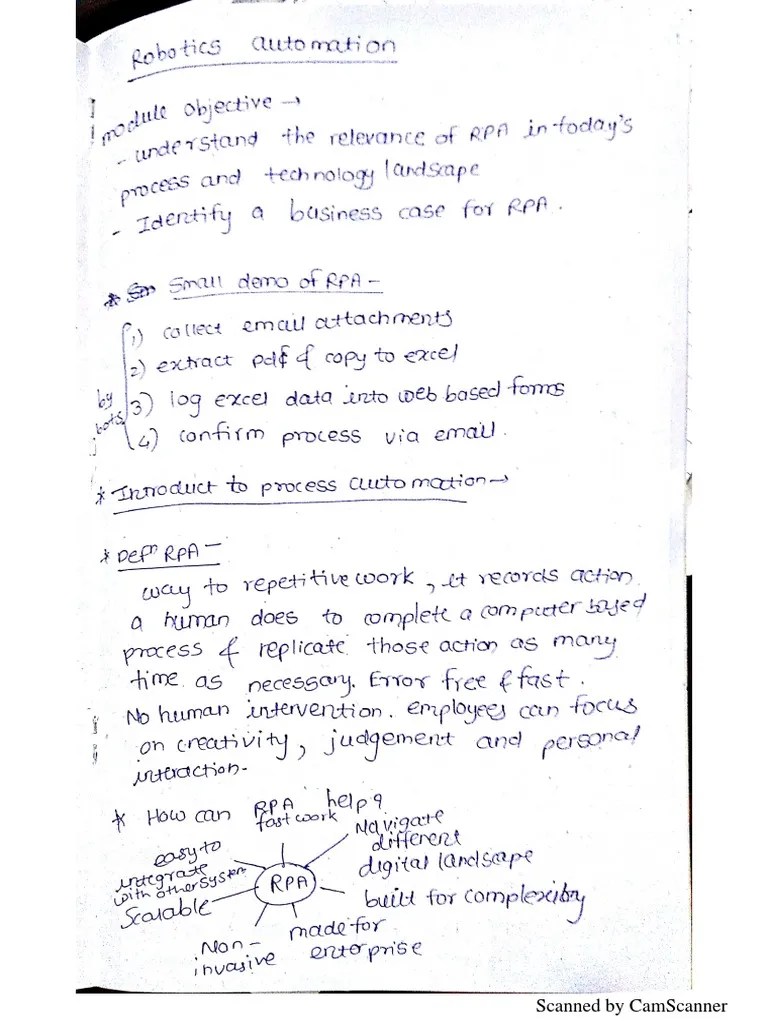 Robotics automation
module objective →
- understand the relevance of RPA in today's
process and technology landscape
- Identify a business case for RPA.
* Small demo of RPA -
by bots
1) collect email attachments
2) extract pdf & copy to excel
3) log excel data into web based forms
4) confirm process via email.
* Introduct to process automation →
* Defn RPA -
way to repetitive work, it records action
a human does to complete a computer based
process & replicate those action as many
time as necessary. Error free & fast.
No human intervention. employees can focus
on creativity, judgement and personal
interaction.
* How can RPA help?
fast work
Navigate
different
digital landscape
easy to
integrate
with other system
RPA
built for complexity
Scalable
made for
enterprise
Non-
invasive
Scanned by CamScanner